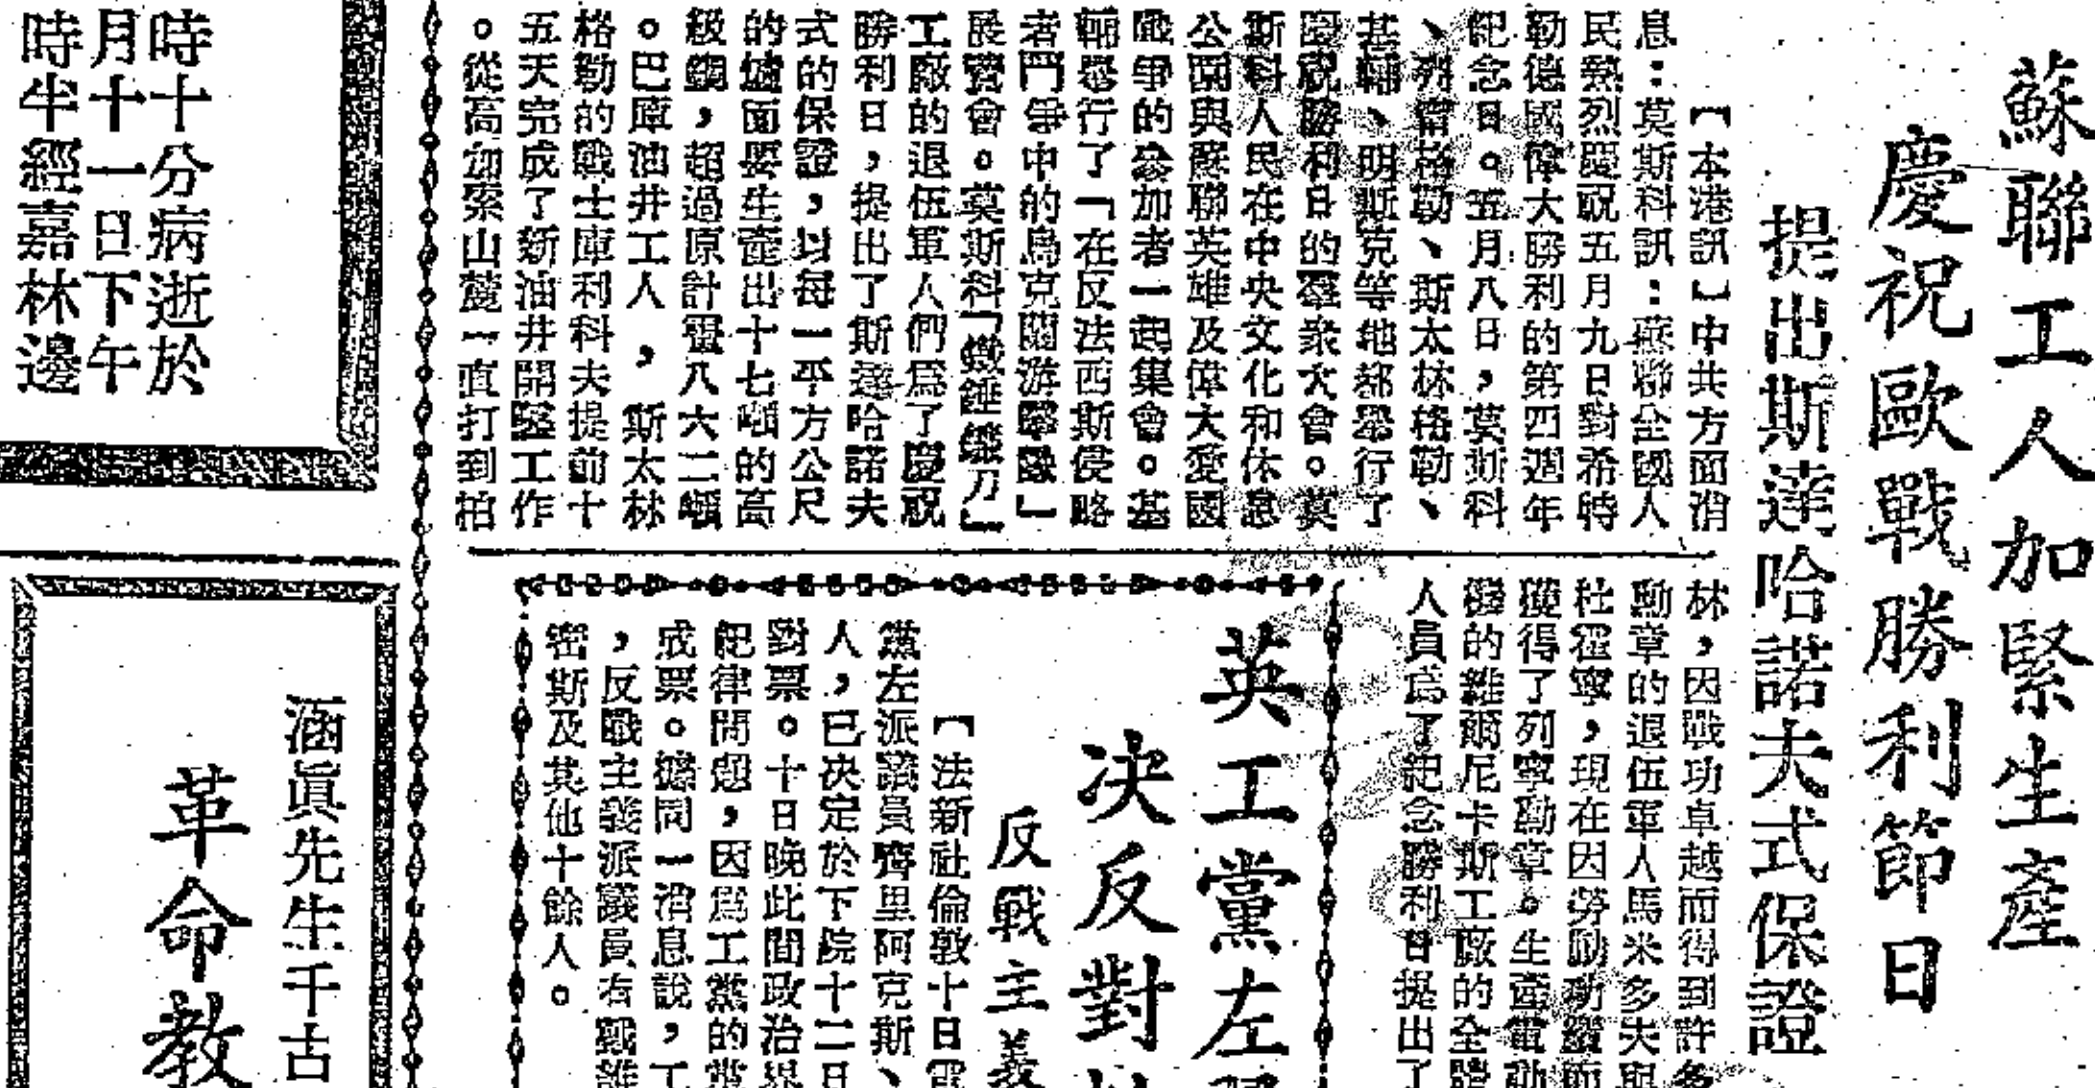 蘇聯工人加緊生產
慶祝歐戰勝利節日
提出斯達哈諾夫式保證
【本港訊】中共方面消
息：莫斯科訊：蘇聯全國人
民熱烈慶祝五月九日對希特
勒德國偉大勝利的第四週年
紀念日。五月八日，莫斯科
、列寗格勒、斯太林格勒、
基輔、明斯克等地都舉行了
慶祝勝利日的羣衆大會。莫
斯科人民在中央文化和休息
公園與蘇聯英雄及偉大愛國
戰爭的參加者一起集會。基
輔舉行了「在反法西斯侵略
者鬥爭中的烏克蘭游擊隊」
展覽會。莫斯科「鐵錘鐮刀」
工廠的退伍軍人們爲了慶祝
勝利日，提出了斯達哈諾夫
式的保證，以每一平方公尺
的爐面要生產出十七噸的高
級鋼，超過原計劃八大二噸
。巴庫油井工人，斯太林
格勒的戰士庫利科夫提前十
五天完成了新油井開鑿工作
。從高加索山麓一直打到柏
林，因戰功卓越而得到許多
勳章的退伍軍人馬米多夫與
杜霍寧，現在因勞動功績而
獲得了列寧勳章。生產電動
機的維爾尼卡斯工廠的全體
人員爲了紀念勝利日提出了
英工黨左
決反對
反戰主義
【法新社倫敦十日電
黨左派議員齊里阿克斯、
人，已決定於下院十二日
對票。十日晚此間政治界
紀律問題，因爲工黨的黨
成票。據同一消息說，工
，反戰主義派議員有戴維
密斯及其他十餘人。
時十分病逝於
月十一日下午
時半經嘉林邊
涵眞先生千古
革命教